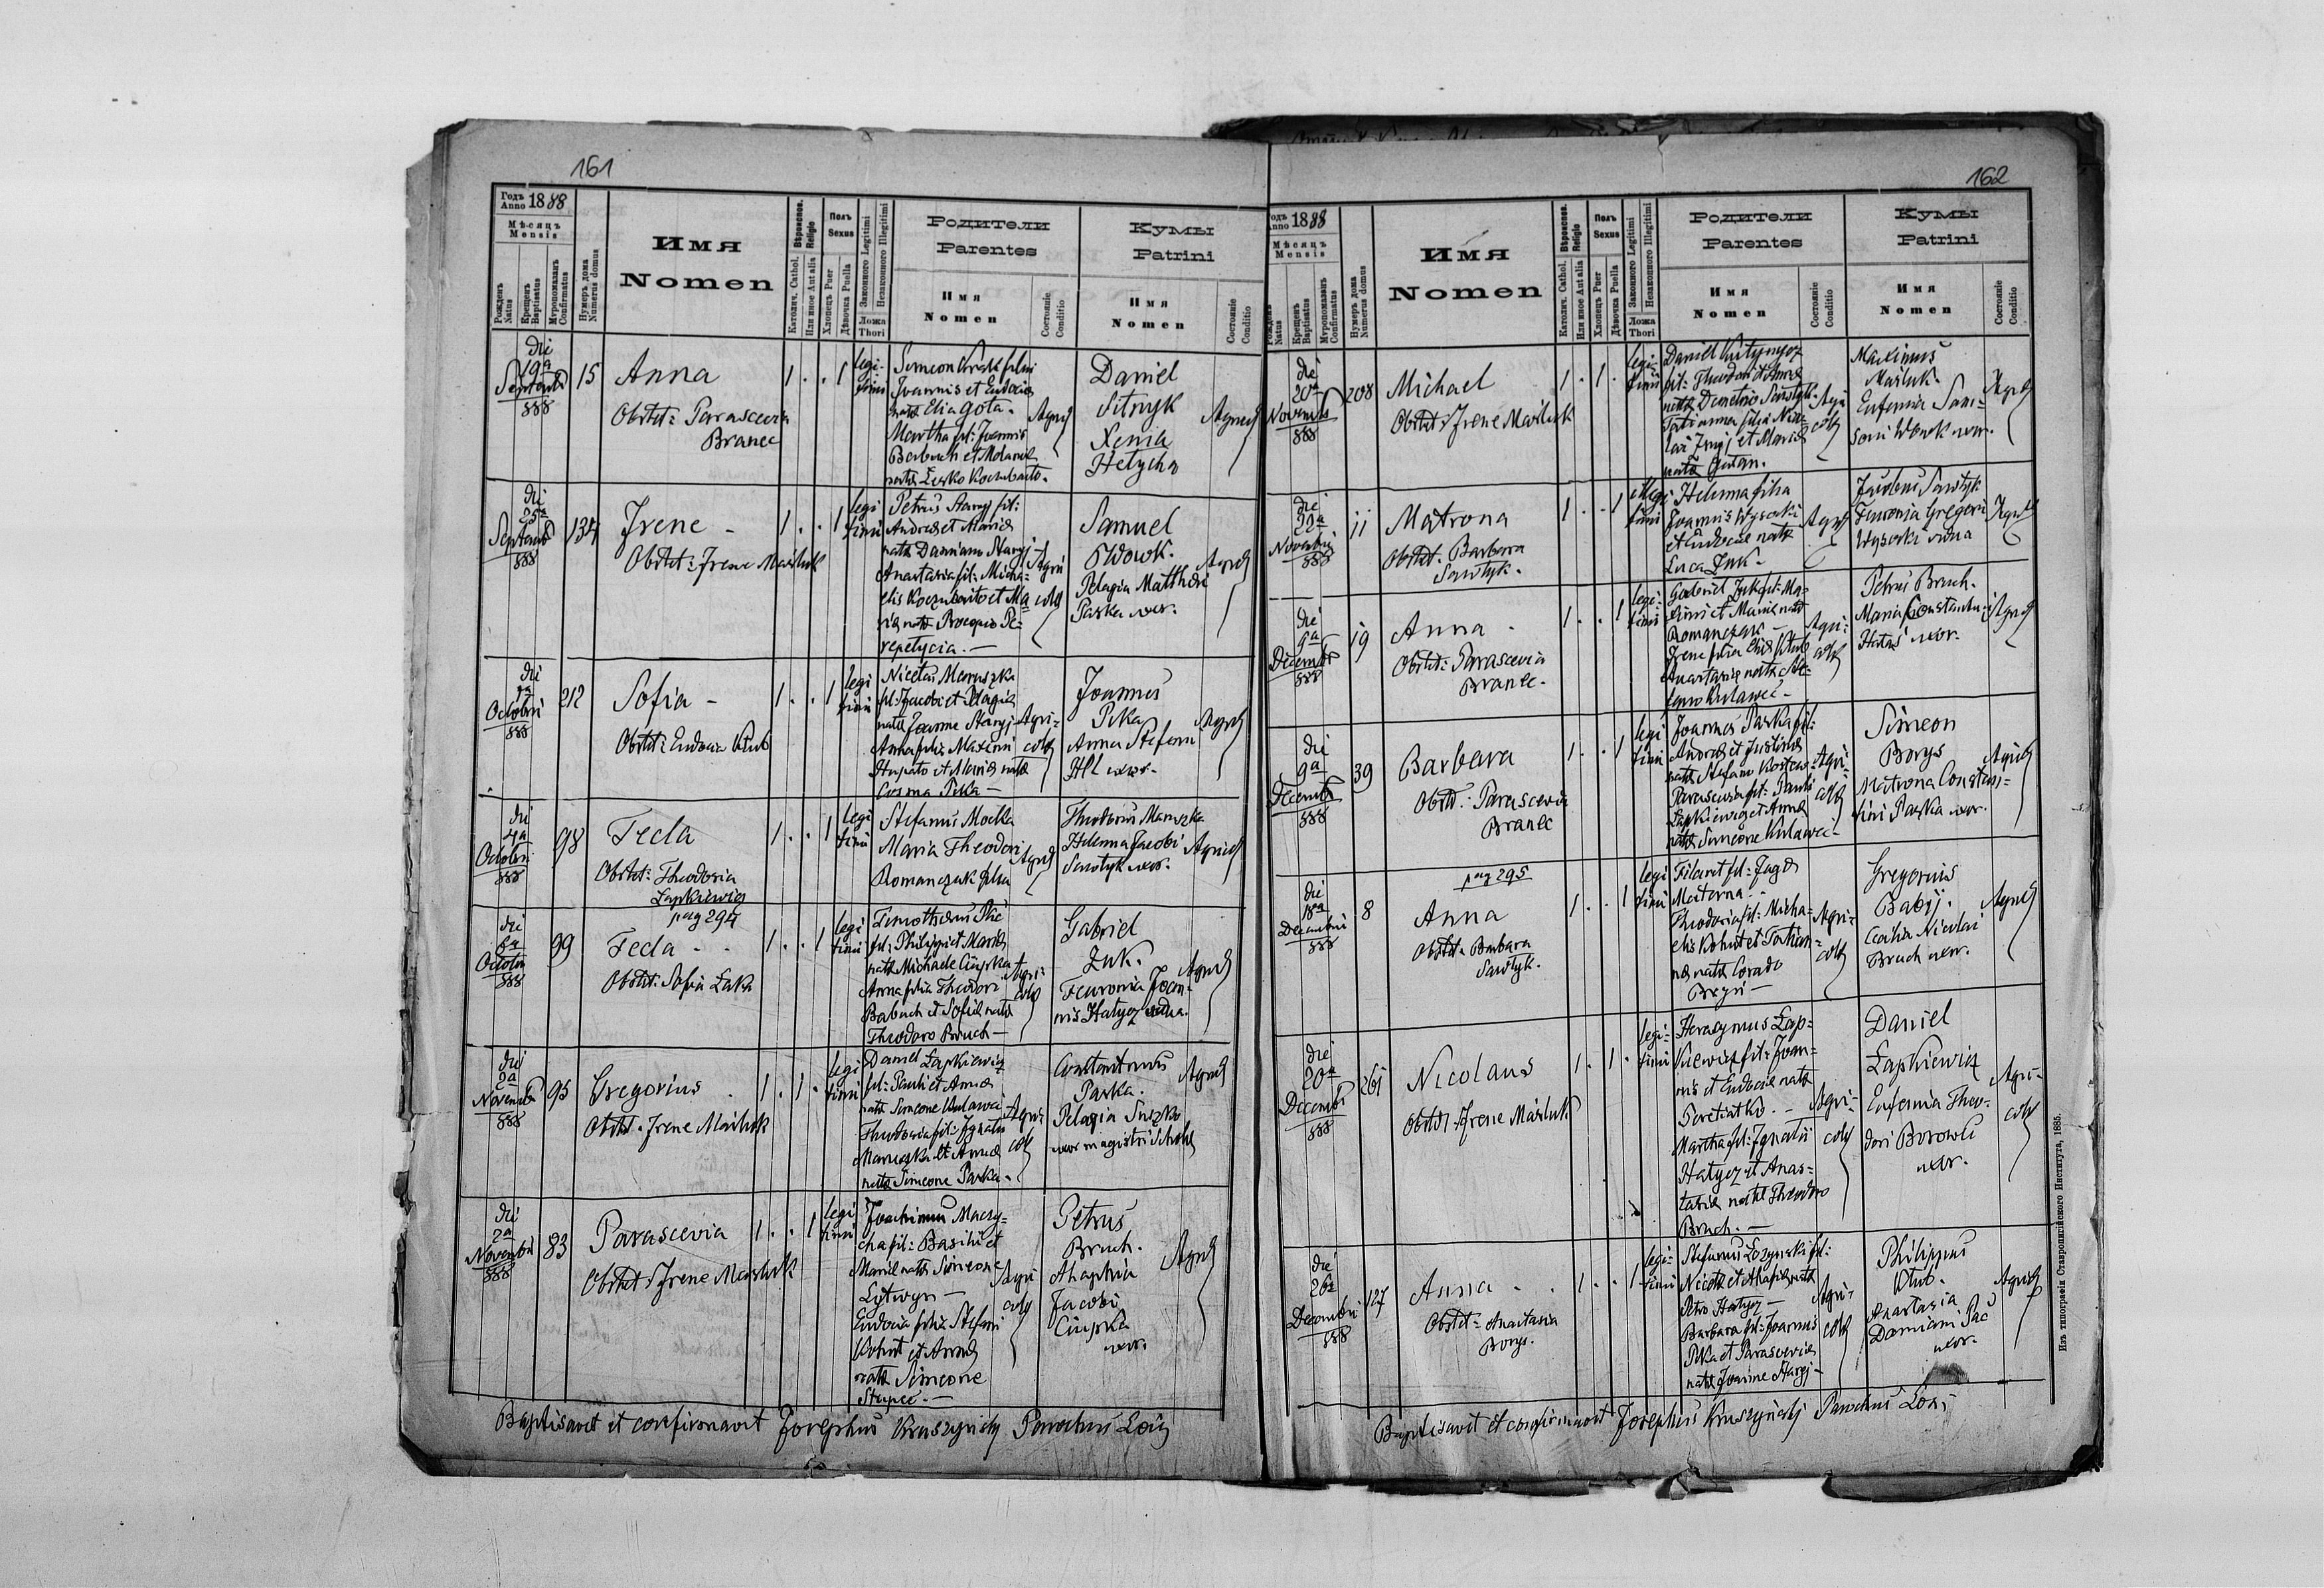 161
Годъ Anno 1888
Мѣсяцъ Mensis
Рожденъ Natus
Крещенъ Baptisatus
Мѵропомазанъ Confirmatus
Нумеръ дома Numerus domus
Имя Nomen
Вѣроиспов. Religio
Католич. Cathol.
Или иное Aut alia
Полъ Sexus
Хлопецъ Puer
Дѣвочка Puella
Законного Legitimi
Незаконного Illegitimi
Ложа Thori
Родители Parentes
Имя Nomen
Состояніе Conditio
Кумы Patrini
Имя Nomen
Состояніе Conditio
die 19a Septembr 888
15
Anna
Obstet: Parascevia
Branec
1 . . 1
legi-
timi
Simeon
Joannis et Eudocia
natae Elia Gota.
Martha fil: Joannis
Babuch et
Daniel
Sitnyk
Xenia
Hetycha
die 25a Septemb 888
134
Irene -
Obstet: Irene Maśluk
1 . . 1
legi
timi
Petrus Haryj fil:
Andreae et Mariae
natae Damiano Haryj-
Anastasia fil: Micha-
elis et Ma
riae natae Procopio Pe-
repelycia.-
Agri
colae
Samuel
Wdowk.
Pelagia Matthaei
Paska uxor.
die 1a Octobri 888
212
Sofia -
Obstet: Eudocia Klub
1 . . 1
legi
timi
Nicetas Maruszka
fil: Jacobi et Pelagiae
natae Joanne Haryj-
Anna filia Maximi
Hupalo et Mariae natae
Cosma Pika -
Agri-
colae
Joannes
Pika
Anna Stefani
uxor.
die 4a Octobri 888
98
Tecla
Obstet: Theodosia
Łapkiewicz
1 . . 1
legi
timi
Stefanus Mocka
Maria Theodori
Romanczuk filia
Theodorus Maruszka
Helenna Jacobi
Sawtyk uxor.
pag 294
die 6a Octobri 888
99
Tecla - .
Obstet: Sofia Łaka
1 . . 1
legi
timi
fil: Philippi et Mariae
natae Michaele Ciupka
Anna filia Theodori
Babuch et Sofiae natae
Theodoro Bruch -
Agri-
colae
Gabriel
Żuk.
Fewronia Joan-
nis Hatycz vidua.
die 2a Novembr 888
95
Gregorius .
Obstet: Irene Maśluk
1 . 1 .
legi
timi
Daniel Łapkiewicz
fil: Pauli et Annae
natae Simeone Kulawec
Theodosia fil: Ignatii
Maruszka et Annae
natae Simeone Paska.
Agri-
colae
Constantinus
Paska.
Pelagia Suszko
uxor magistri Scholae
die 2a Novembri 888
83
Parascevia
Obstet: Irene Maśluk
1 . . 1
legi
timi
Joachimus Maczy-
cha fil: Basilii et
Mariae natae Simeone
Lytwyn -
Eudocia filia Stefani
Kohut et Annae
natae Simeone
Stupec. -
Agri
colae
Petrus
Bruch.
Ahaphia
Jacobi
Ciupka
uxor.
Baptisavit et confirmavit Josephus Kruszyński Parochus Loci
162
Годъ Anno 1888
Мѣсяцъ Mensis
Рожденъ Natus
Крещенъ Baptisatus
Мѵропомазанъ Confirmatus
Нумеръ дома Numerus domus
Имя Nomen
Вѣроиспов. Religio
Католич. Cathol.
Или иное Aut alia
Полъ Sexus
Хлопецъ Puer
Дѣвочка Puella
Законного Legitimi
Незаконного Illegitimi
Ложа Thori
Родители Parentes
Имя Nomen
Состояніе Conditio
Кумы Patrini
Имя Nomen
Состояніе Conditio
die 20a Novembr 888
208
Michael
Obstet: Irene Maśluk
1 . 1 .
legi-
timi
Daniel
fil: Theodori et Annae
natae Demetrio Sawtyk-
Tatianna filia Nico-
lai et Mariae
Agri
colae
Maximus
Maśluk.
Eufemia Sam-
soni uxor.
die 20a Novembri 888
11
Matrona
Obstet. Barbara
Sawtyk.
1 . . 1
illegi
timi
Helenna filia
Joannis Wysocki
et Eudociae natae
Luca Żuk -
Jacobus Sawtyk
Fewronia Gregorii
Wysocki vidua
die 9a Decembr 888
19
Anna -
Obstet: Parascevia
Branec -
1 . . 1
legi-
timi
Gabriel Żuk fil: Ma-
ximi et Mariae natae
Romanczuk -
Irene filia Eliae Klub
Anastasiae natae Ste-
fano Kulawec -
Agri-
colae
Petrus Bruch.
Maria Constantini
uxor.
die 9a Decembr 888
39
Barbara
Obstet.: Parascevia
Branec
1 . . 1
legi
timi
Joannes Paska fil:
Andreae et Justinae
natae Stefano
Parascevia fil: Pauli
Łapkiewicz et Annae
natae Simeone Kulawec -
Agri-
colae
Simeon
Borys
Matrona Constan-
tini Paska uxor.
pag 295
die 18a Decembri 888
8
Anna
Obstet: Barbara
Sawtyk.
1 . . 1
legi
timi
Filaret fil:
Materna. -
Theodosia fil: Micha-
elis Kohut et Tatian-
nae natae
Agri-
colae
Gregorius
Babij.
Cecilia Nicolai
Bruch uxor.
die 20a Decembri 888
261
Nicolaus
Obstet: Irene Maśluk
1 . 1 .
legi-
timi
Herasymus Łap-
kiewicz fil: Joan-
nis et Eudociae natae
. -
Martha fil: Ignatii
Hatycz et Anas-
tasiae natae Theodoro
Bruch. -
Agri-
colae
Daniel
Łapkiewicz
Eufemia Theo-
dori Borowec
uxor.
Agri-
colae
die 26a Decembri 888
127
Anna - .
Obstet: Anastasia
Borys.
1 . . 1
legi-
timi
Stefanus Łozynski fil:
Nicetae et Ahafiae natae
Petro Hatycz -
Barbara fil: Joannis
Pika et Parasceviae
natae Joanne Haryj -
Agri-
colae
Philippus
Klub.
Anastasia
Damiani
uxor.
Baptisavit et confirmavit Josephus Kruszyński Parochus Loci
Изъ типографіи Ставропигійского Института, 1885.